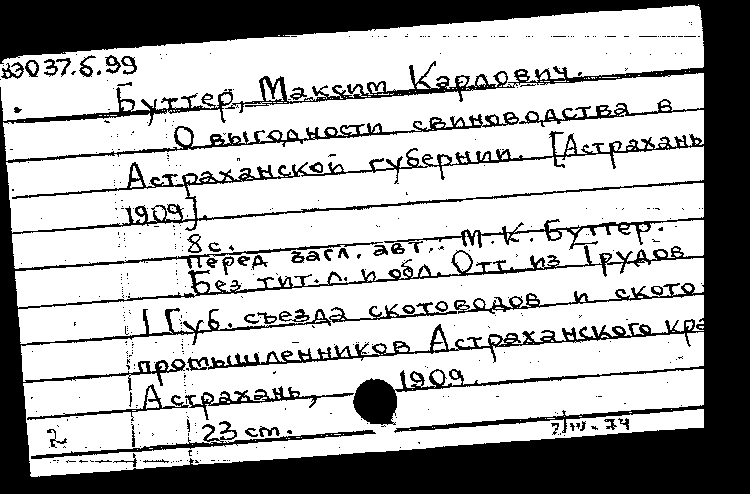 вэ037.6.99
Буттер, Максим Карлович.
О выгодности свиноводства в
Астраханской губернии. [Астрахань
1909].
8 с.
перед загл. авт.: М.К. Буттер.
Без тит. л. и обл. Отт. из Трудов
I Губ. съезда скотоводов и ското
промышленников Астраханского кра
Астрахань, 1909.
2 23 ст.